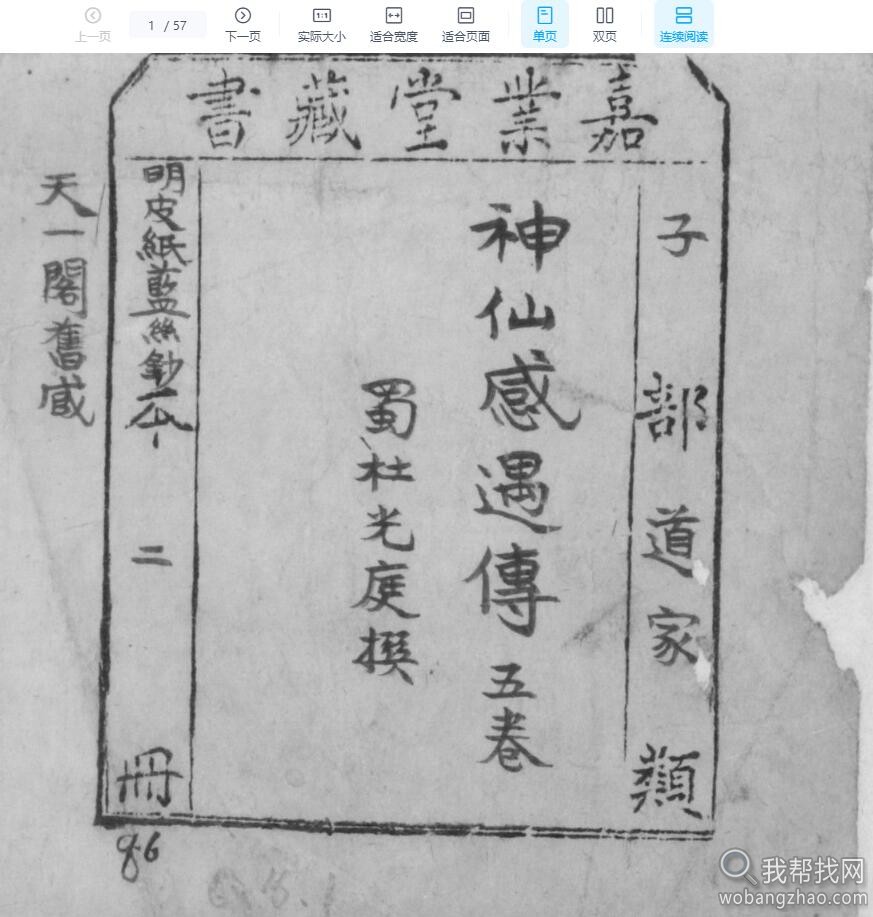 上一页
1 / 57
下一页
实际大小
适合宽度
适合页面
单页
双页
连续阅读
嘉業堂藏書
子部道家類
神仙感遇傳五卷
蜀杜光庭撰
明皮紙藍絲鈔本二冊
天一閣舊藏
8.6
我帮找网
wobangzhao.com